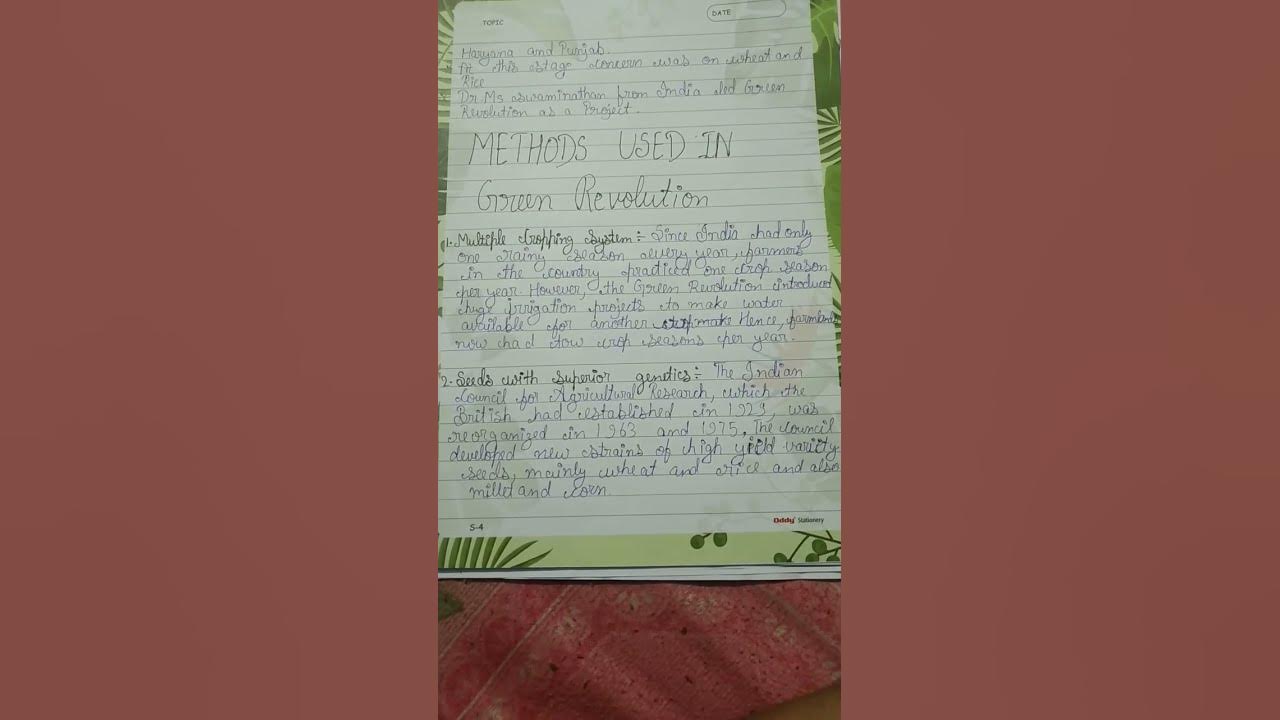 TOPIC
DATE
Haryana and Punjab.
At this stage concern was on wheat and
Rice
Dr Ms Swaminathan from India led Green
Revolution as a Project.
METHODS USED IN
Green Revolution
1. Multiple cropping system:- Since India had only
one rainy season every year, farmers
in the country practiced one crop season
per year. However, the Green Revolution introduced
huge irrigation projects to make water
available for another make Hence, farmlands
now had tow crop seasons per year.
2. Seeds with superior genetics:- The Indian
Council for Agricultural Research, which the
British had established in 1929, was
reorganized in 1963 and 1975. The council
developed new strains of high yield variity
seeds, mainly wheat and rice and also
millet and corn.
S-4
Oddy Stationery